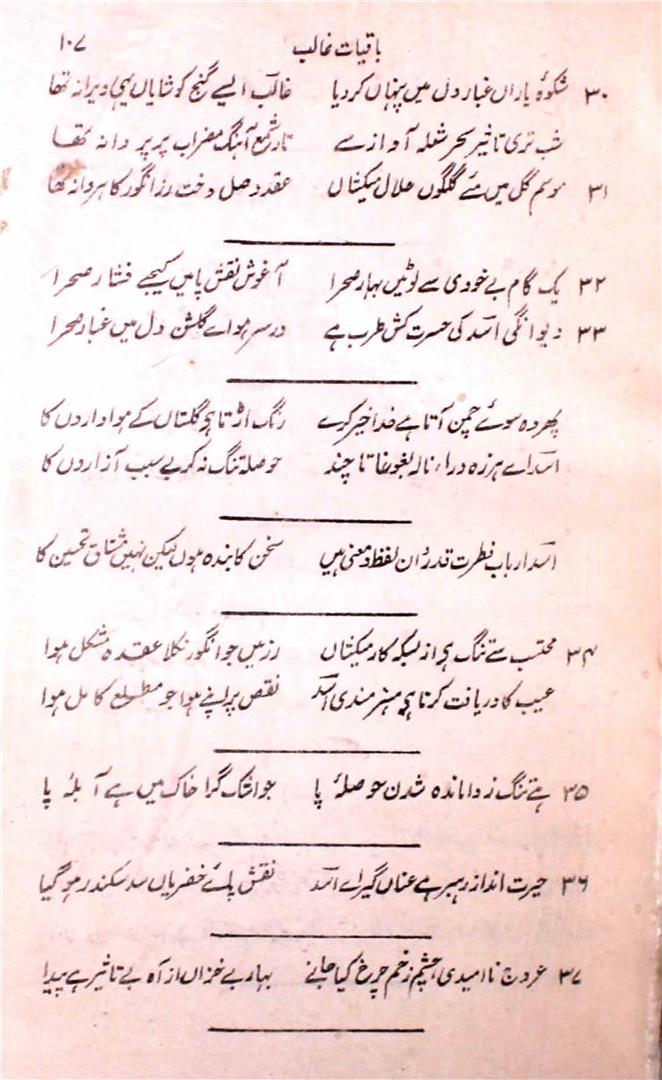 باقیات غالب ۱۰۷
۳۰ شکوۂ یاراں غبار دل میں پنہاں کر دیا غالبؔ ایسے گنج کو شایاں یہی ویرانہ تھا
شب تری تاثیر سحر شعلہ آواز سے تار شمع آہنگ مضراب پر پروانہ تھا
۳۱ موسم گل میں مئے گلگوں حلال میکشاں عقد وصل دخت رز انگور کا ہر دانہ تھا
۳۲ یک گام بے خودی سے لوٹیں بہار صحرا آغوش نقش پا میں کیجے فشار صحرا
۳۳ دیوانگی اسدؔ کی حسرت کش طرب ہے در سر ہوائے گلشن دل میں غبار صحرا
پھر وہ سوئے چمن آتا ہے خدا خیر کرے رنگ اڑتا ہے گلستاں کے ہوا داروں کا
اسدؔ اے ہرزہ درا، نالہ بغوغا تا چند حوصلہ تنگ نہ کر بے سبب آزاروں کا
اسدؔ ارباب فطرت قدردان لفظ و معنی ہیں سخن کا بندہ ہوں لیکن نہیں مشتاق تحسین کا
۳۴ محتسب سے تنگ ہے از بسکہ کار میکشاں رز میں جو انگور نکلا عقدہ مشکل ہوا
عیب کا دریافت کرنا ہے ہنرمندی اسدؔ نقص پر اپنے ہوا جو مطلع کامل ہوا
۳۵ ہے تنگ ز واماندہ شدن حوصلۂ پا جو اشک گرا خاک میں ہے آبلۂ پا
۳۶ حیرت انداز رہبر ہے عناں گیر اے اسدؔ نقش پائے خضر یاں سد سکندر ہو گیا
۳۷ عروج ناامیدی، چشم زخم چرخ کیا جانے بہار بے خزاں از آہ بے تاثیر ہے پیدا